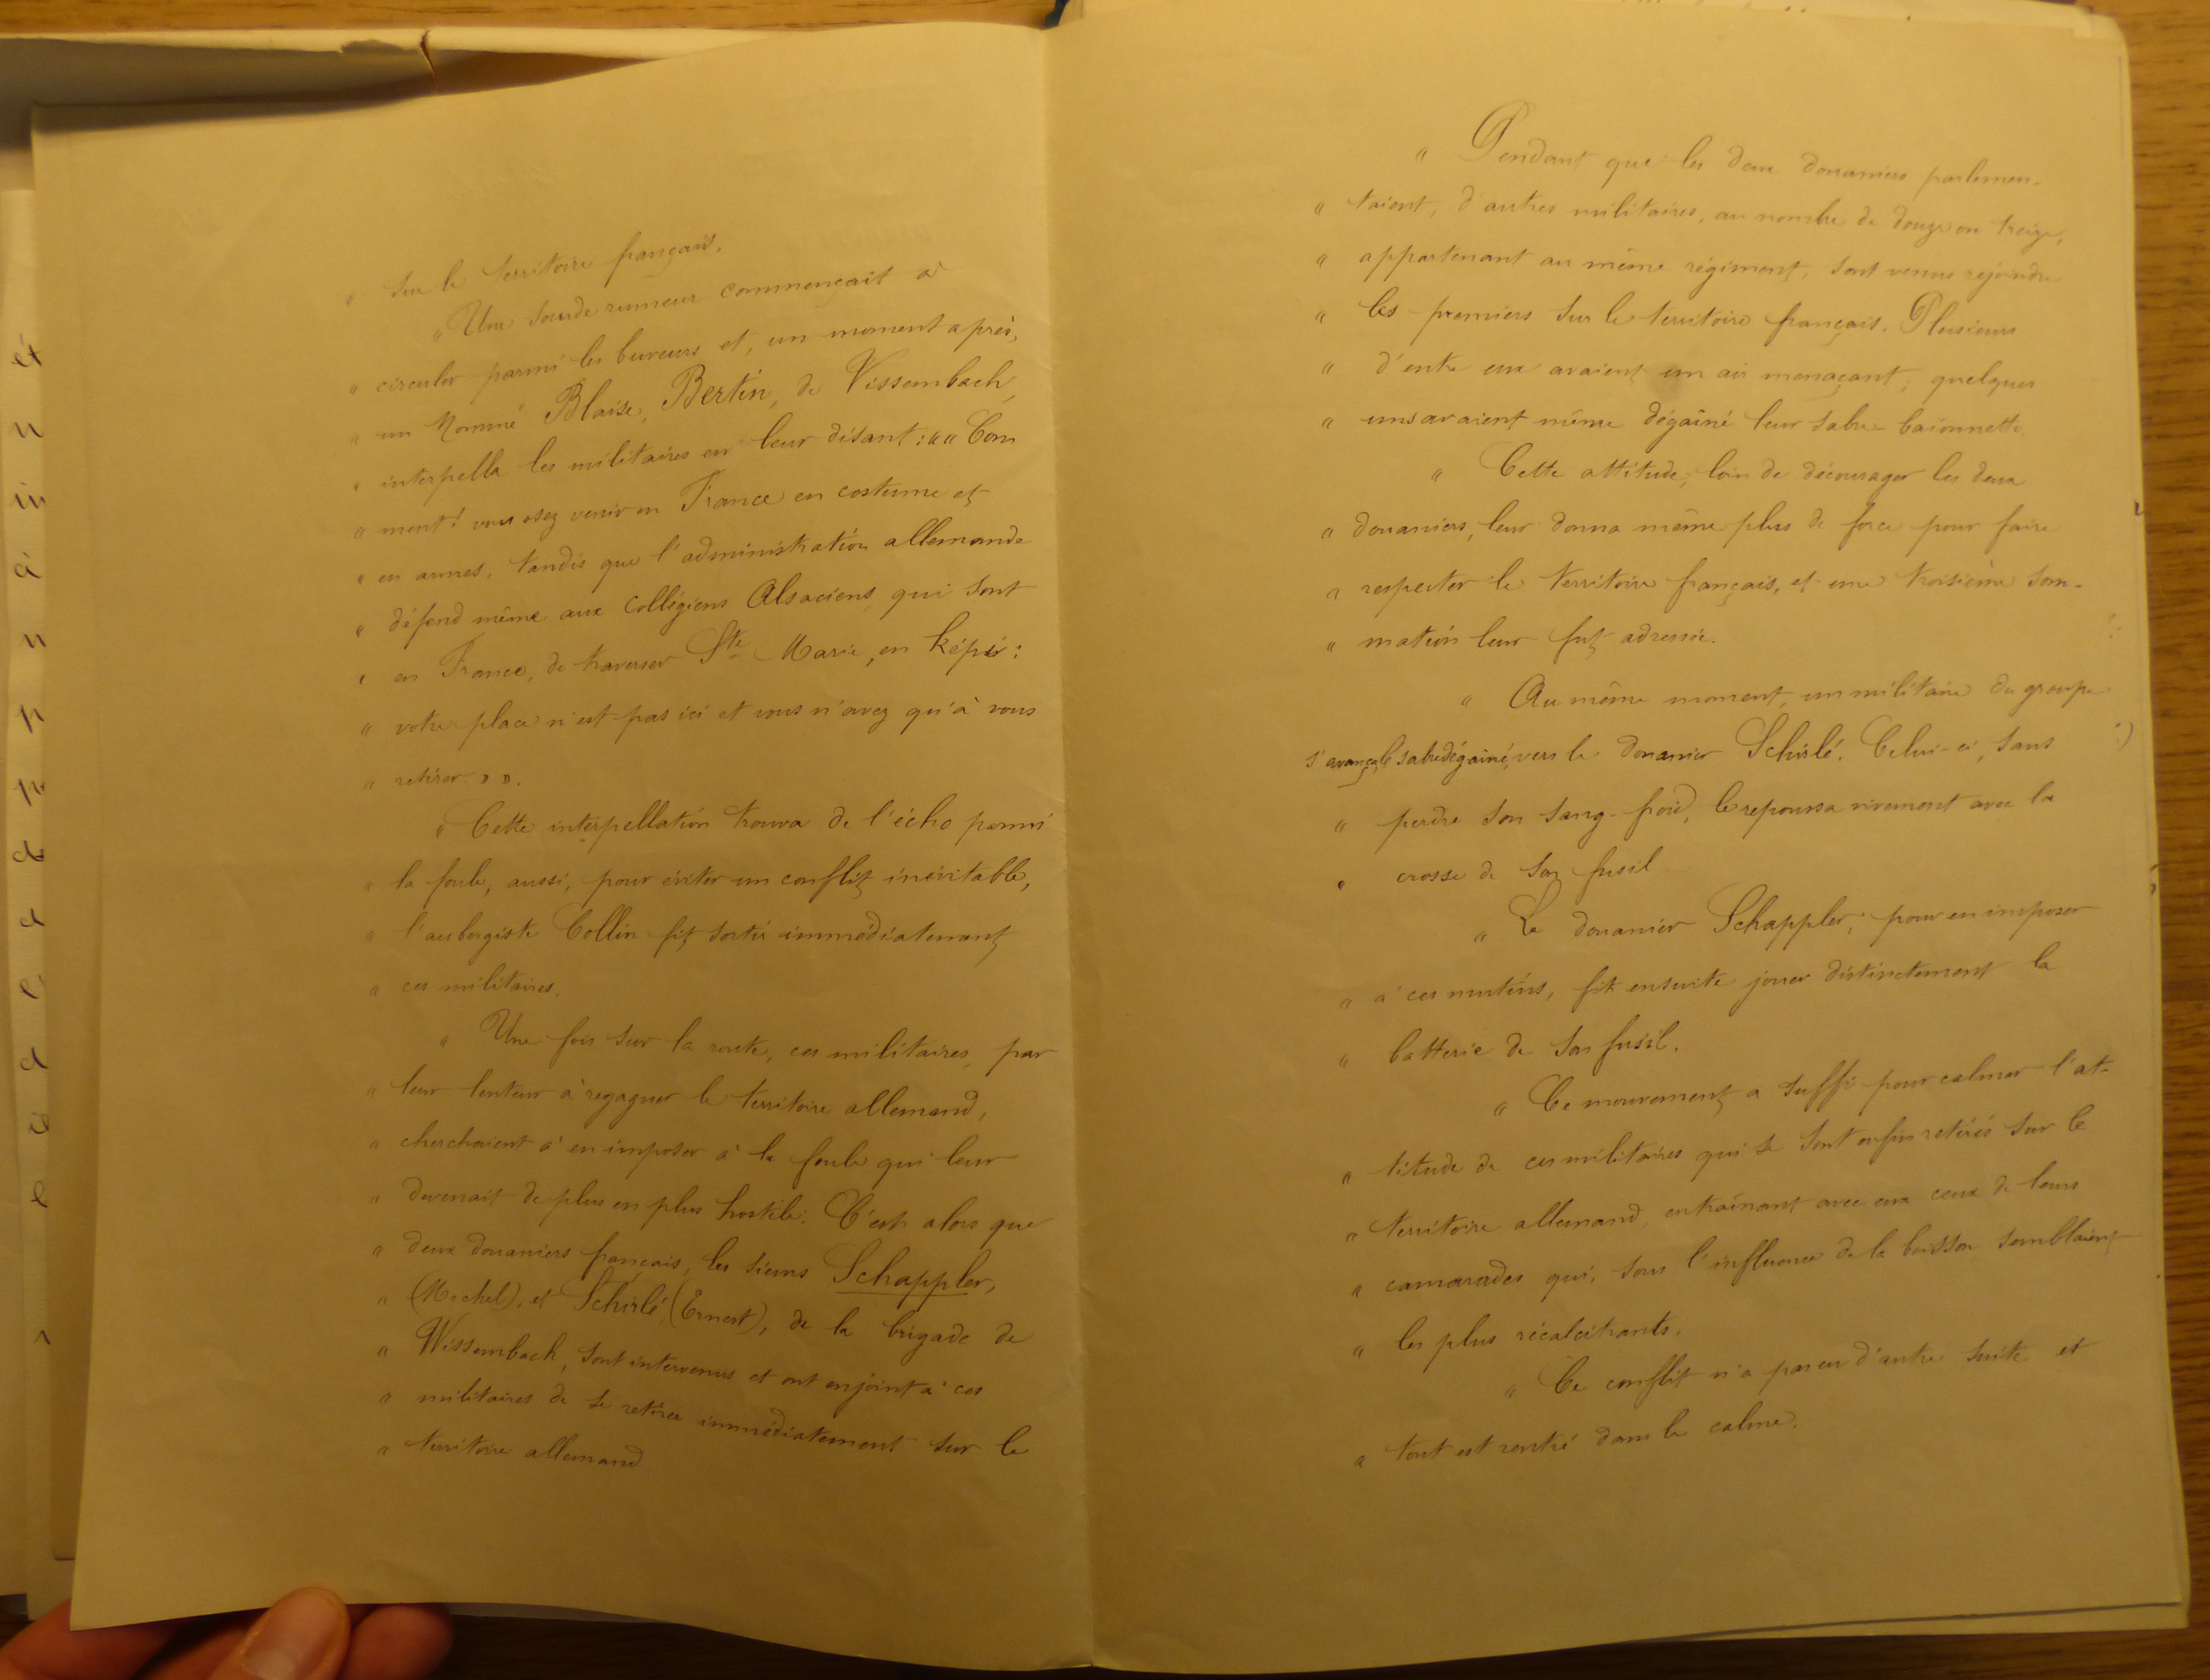 " sur le territoire français.
" Une sourde rumeur commençait à
" circuler parmi les buveurs et, un moment après,
" un nommé Blaise, Bertin, de Vissembach,
" interpella les militaires en leur disant : "" Com
" ment ! vous osez venir en France en costume et
" en armes, tandis que l'administration allemande
" défend même aux collégiens Alsaciens, qui sont
" en France, de traverser Ste Marie, en képi :
" votre place n'est pas ici et vous n'avez qu'à vous
" retirer. » ».
" Cette interpellation trouva de l'écho parmi
" la foule, aussi, pour éviter un conflit inévitable,
" l'aubergiste Collin fit sortir immédiatement
" ces militaires.
" Une fois sur la route, ces militaires, par
" leur lenteur à regagner le territoire allemand,
" cherchaient à en imposer à la foule qui leur
" devenait de plus en plus hostile. C'est alors que
" deux douaniers français, les sieurs Schappler,
" (Michel), et Schirlé, (Ernest), de la brigade de
" Wissembach, sont intervenus et ont enjoint à ces
" militaires de se retirer immédiatement sur le
" territoire allemand
" Pendant que les deux douaniers parlemen-
" taient, d'autres militaires, au nombre de douze ou treize,
" appartenant au même régiment, sont venus rejoindre
" les premiers sur le territoire français. Plusieurs
" d'entre eux avaient un air menaçant ; quelques
" uns avaient même dégaîné leur sabre-baïonnette
" Cette attitude, loin de décourager les deux
" douaniers, leur donna même plus de force pour faire
" respecter le territoire français, et une troisième som-
" mation leur fut adressée.
" Au même moment, un militaire du groupe
s'avança, le sabre dégaîné, vers le douanier Schirlé. Celui-ci, sans
" perdre son sang-froid, le repoussa vivement avec la
" crosse de son fusil
" Le douanier Schappler, pour en imposer
" à ces mutins, fit ensuite jouer distinctement la
" batterie de son fusil.
" Ce mouvement a suffi pour calmer l'at-
" titude de ces militaires qui se sont enfin retirés sur le
" territoire allemand, entraînant avec eux ceux de leurs
" camarades qui, sous l'influence de la boisson semblaient
" les plus récalcitrants.
" Ce conflit n'a pas eu d'autre suite et
" tout est rentré dans le calme.